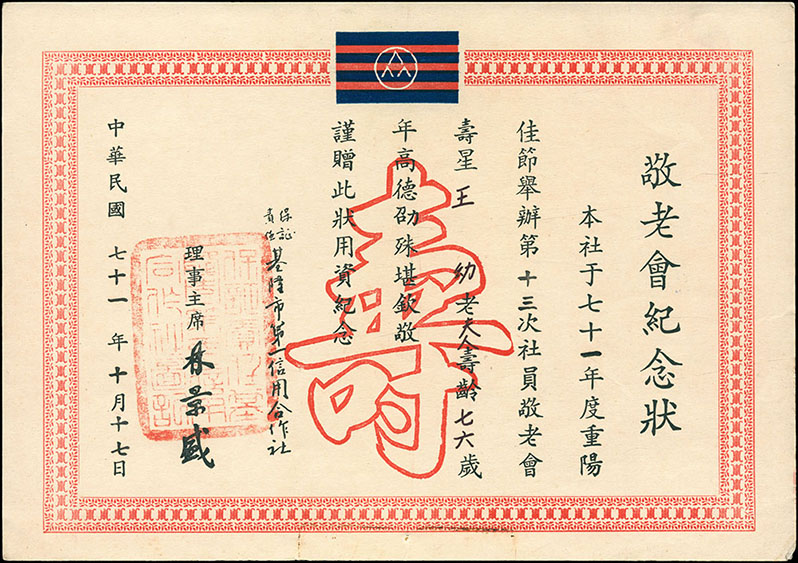 敬老會紀念狀
本社于七十一年度重陽
佳節舉辦第十三次社員敬老會
壽星王幼老夫人壽齡七六歲
年高德劭殊堪欽敬
謹贈此狀用資紀念
保證責任基隆市第一信用合作社
理事主席林景盛
中華民國七十一年十月十七日
壽